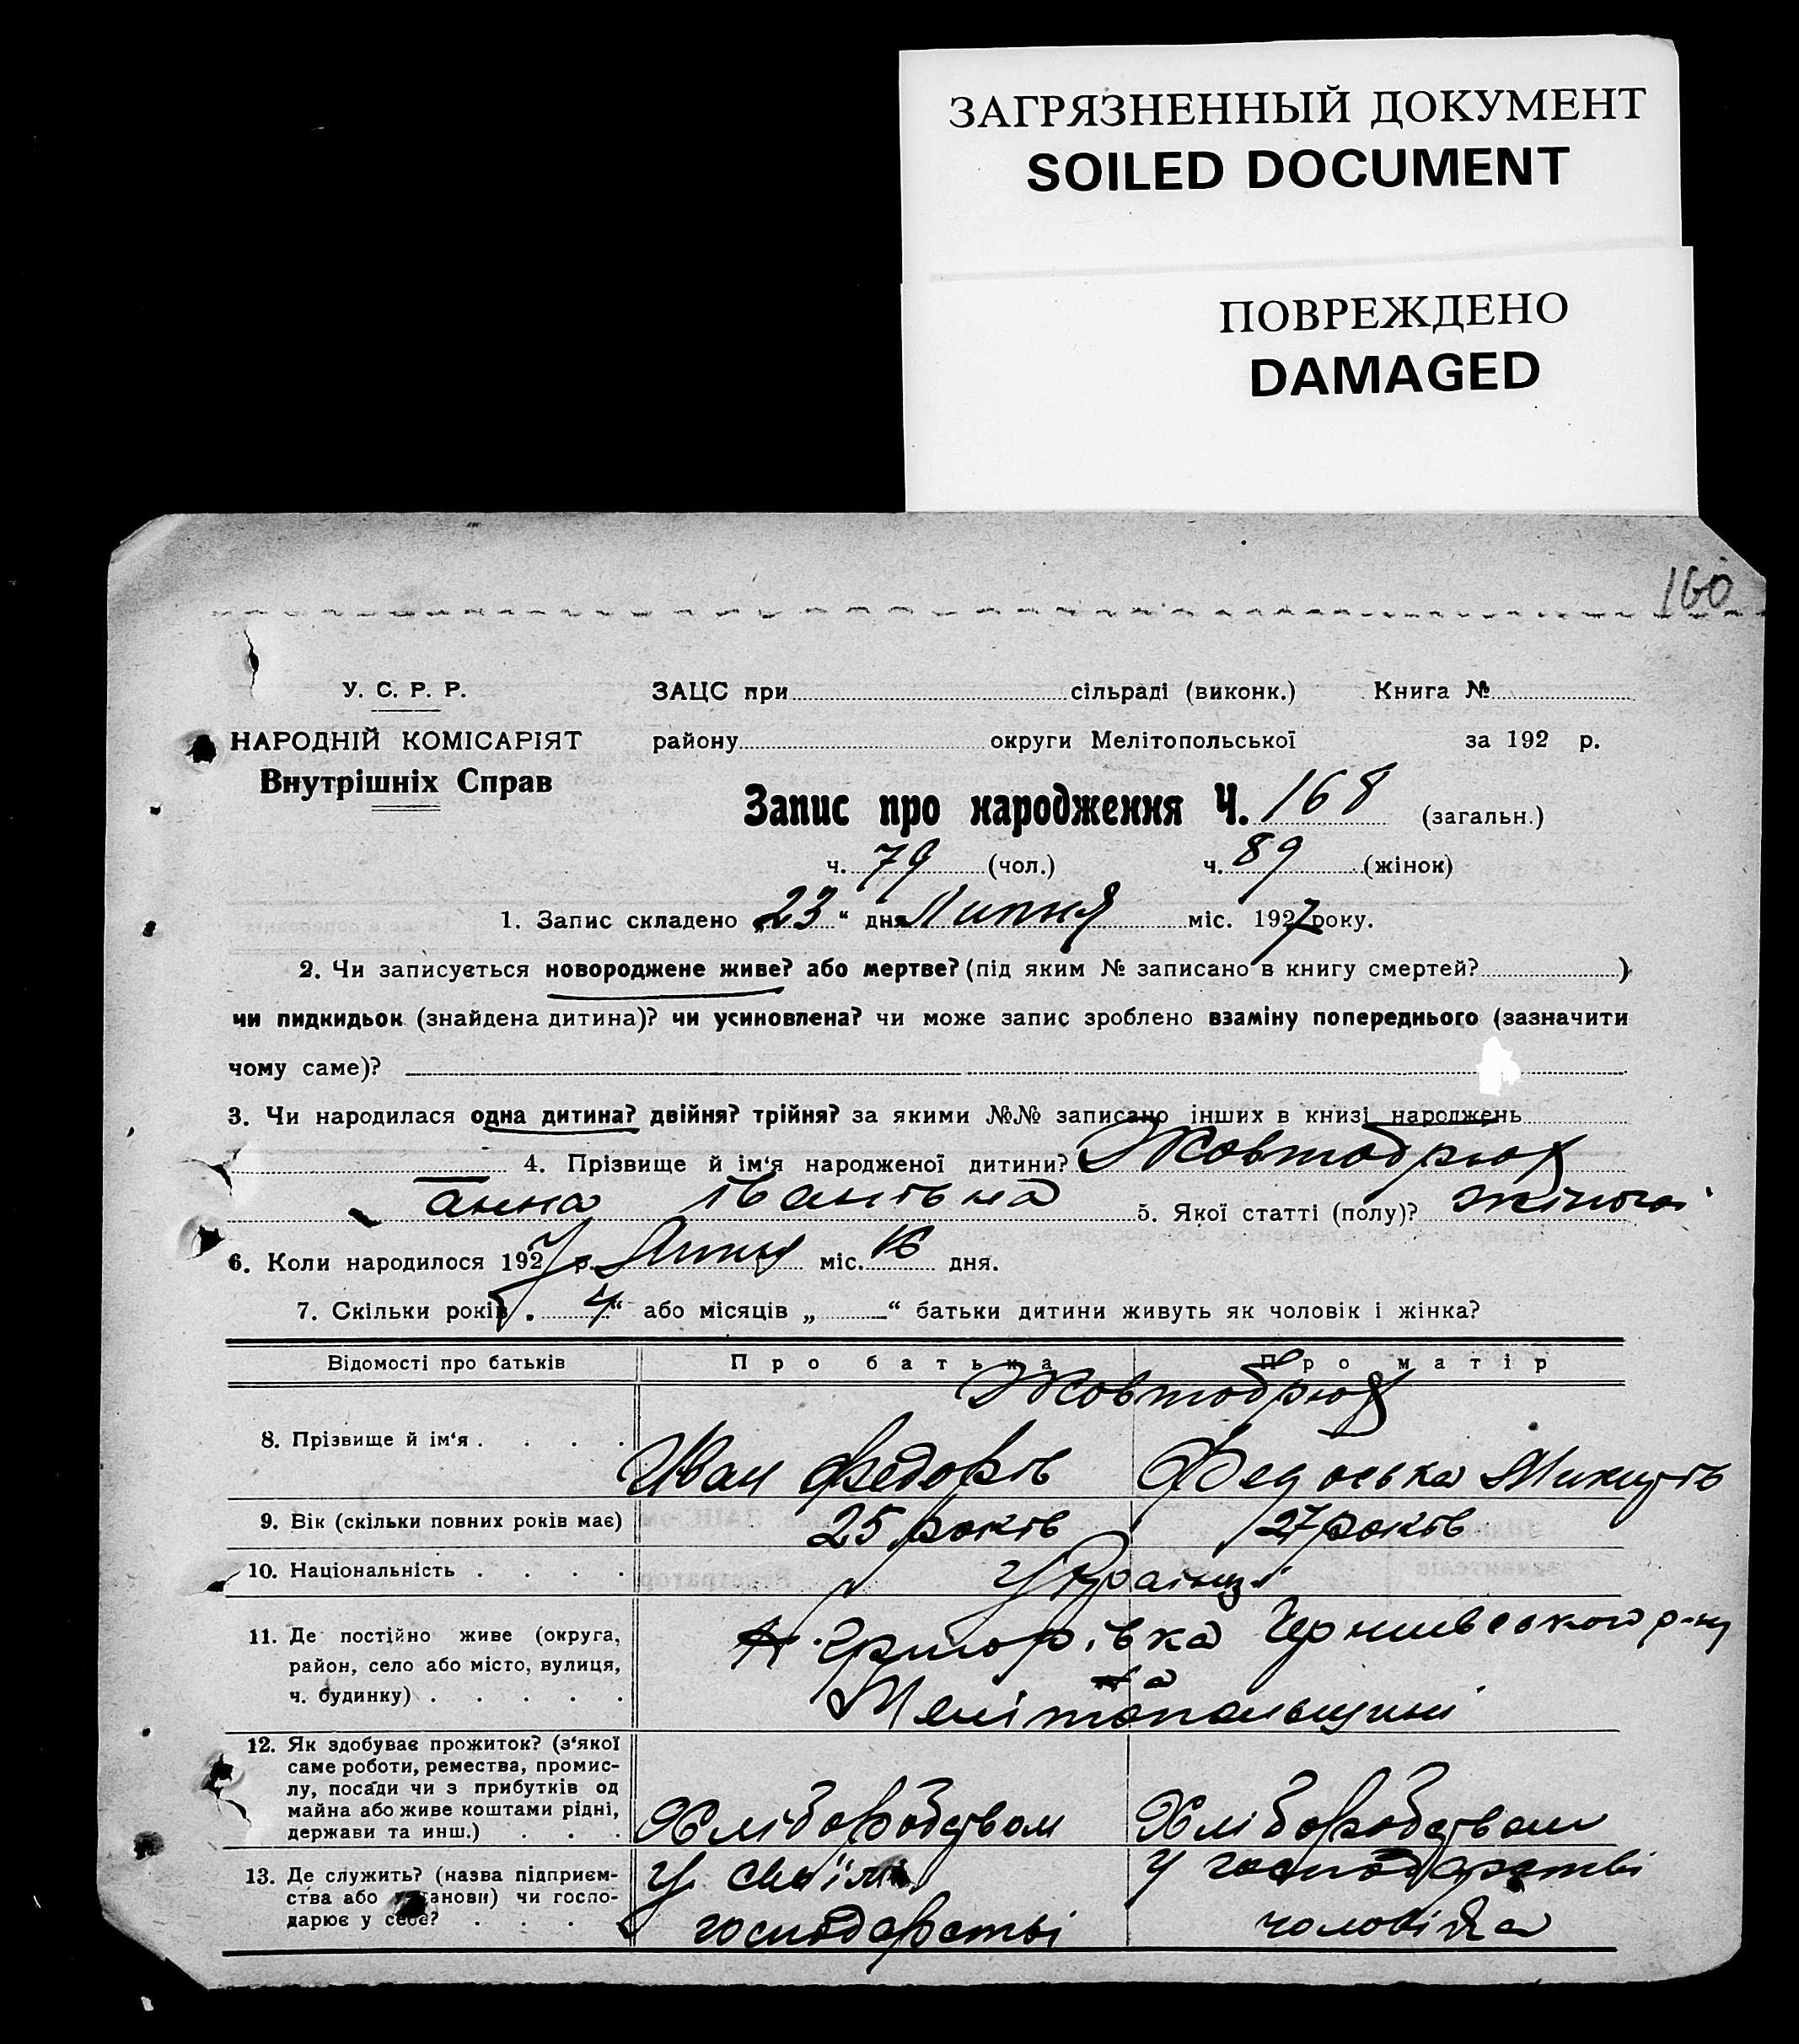 ЗАГРЯЗНЕННЫЙ ДОКУМЕНТ
SOILED DOCUMENT
ПОВРЕЖДЕНО
DAMAGED
160
У. С. Р. Р. ЗАЦС при сільраді (виконк.) Книга №
НАРОДНІЙ КОМІСАРІЯТ району округи Мелітопольської за 192 р.
Внутрішніх Справ
Запис про народження Ч. 168 (загальн.)
ч. 79 (чол.) ч. 89 (жінок)
1. Запис складено „23“ дня Липня міс. 1927 року.
2. Чи записується новороджене живе? або мертве? (під яким № записано в книгу смертей? )
чи пидкидьок (знайдена дитина)? чи усиновлена? чи може запис зроблено взаміну попереднього (зазначити
чому саме)?
3. Чи народилася одна дитина? двійня? трійня? за якими №№ записано інших в книзі народжень
4. Прізвище й ім‘я народженої дитини? Жовтобрюх
Ганна Іванівна 5. Якої статті (полу)? жіночої
6. Коли народилося 1927 р. Липня міс. 16 дня.
7. Скільки років „4“ або місяців „ “ батьки дитини живуть як чоловік і жінка?
Відомості про батьків Про батька Про матір
Жовтобрюх
8. Прізвище й ім‘я . . . . Іван Федорів Федоська Микитів
9. Вік (скільки повних років має) 25 років 27 років
10. Національність . . . . Українці
11. Де постійно живе (округа, Григорівка Чернигівського р-ну
район, село або місто, вулиця,
ч. будинку) . . . . . Мелітопальщині
12. Як здобуває прожиток? (з‘якої
саме роботи, ремества, промис-
лу, посади чи з прибутків од
майна або живе коштами рідні,
держави та инш.) . . . Хліборобством Хліборобством
13. Де служить? (назва підприєм- У своїм у господарстві
ства або установи) чи госпо-
дарює у себе? . . . . господарстві чоловіка